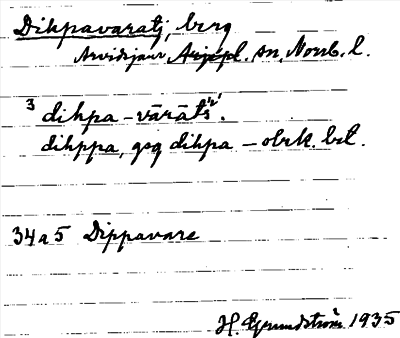 Dihpavaratj, berg
Arvidsjaur, Arjepl. sn, Norrb. l.
3 dihpa-vārāts'.
dihppa, gsg dihpa - obek. bet.
34 a 5 Dippavare
H. Grundström 1935